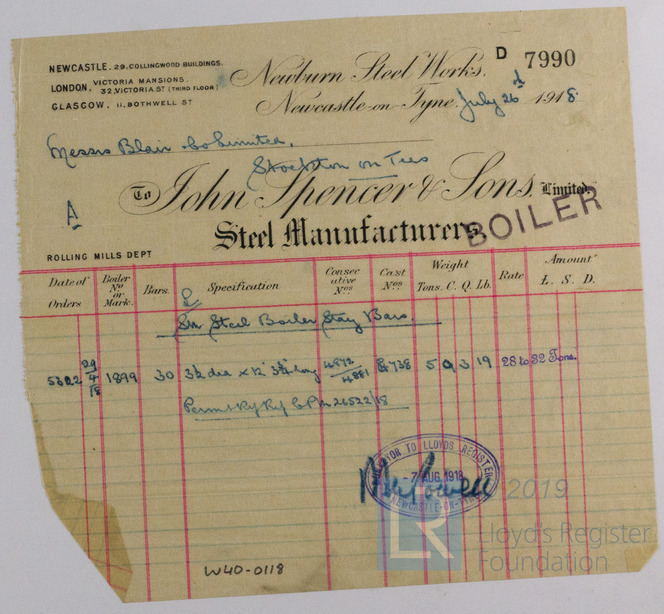 NEWCASTLE. 29, COLLINGWOOD BUILDINGS.
LONDON. VICTORIA MANSIONS. 32, VICTORIA ST (THIRD FLOOR)
GLASGOW, 11, BOTHWELL ST
D 7990
Newburn Steel Works.
Newcastle-on-Tyne July 26 1918.
Messrs Blair Co Limited,
Stockton on Tees
A
To John Spencer & Sons, Limited,
Steel Manufacturers
BOILER
ROLLING MILLS DEPT
Date of Orders Boiler No or Mark. Bars. Specification Consecutive Nos Cast Nos Weight Tons. C. Q. Lb. Rate Amount £. S. D.
Sm Steel Boiler Stay Bars
5322 29/4/18 1899 30 3½ dia x 12' 3¾ long 4872/4881 738 5 9 3 19 28 to 32 Tons.
26522/18
SURVEYOR TO LLOYDS REGISTER
- 7 AUG 1918
NEWCASTLE-ON-TYNE
2019
LR
Lloyd's Register
Foundation
W40-0118